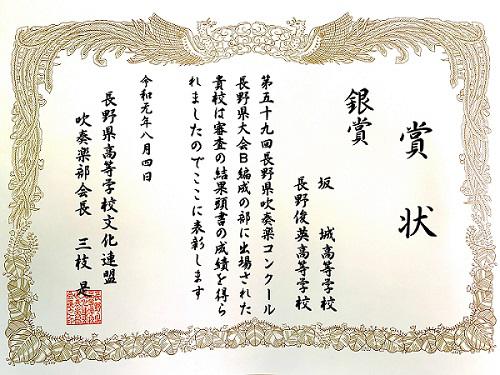 賞状
銀賞
坂城高等学校
長野俊英高等学校
第五十九回長野県吹奏楽コンクール
長野県大会B編成の部に出場された
貴校は審査の結果頭書の成績を得ら
れましたのでここに表彰します
令和元年八月四日
長野県高等学校文化連盟
吹奏楽部会長 三枝 是